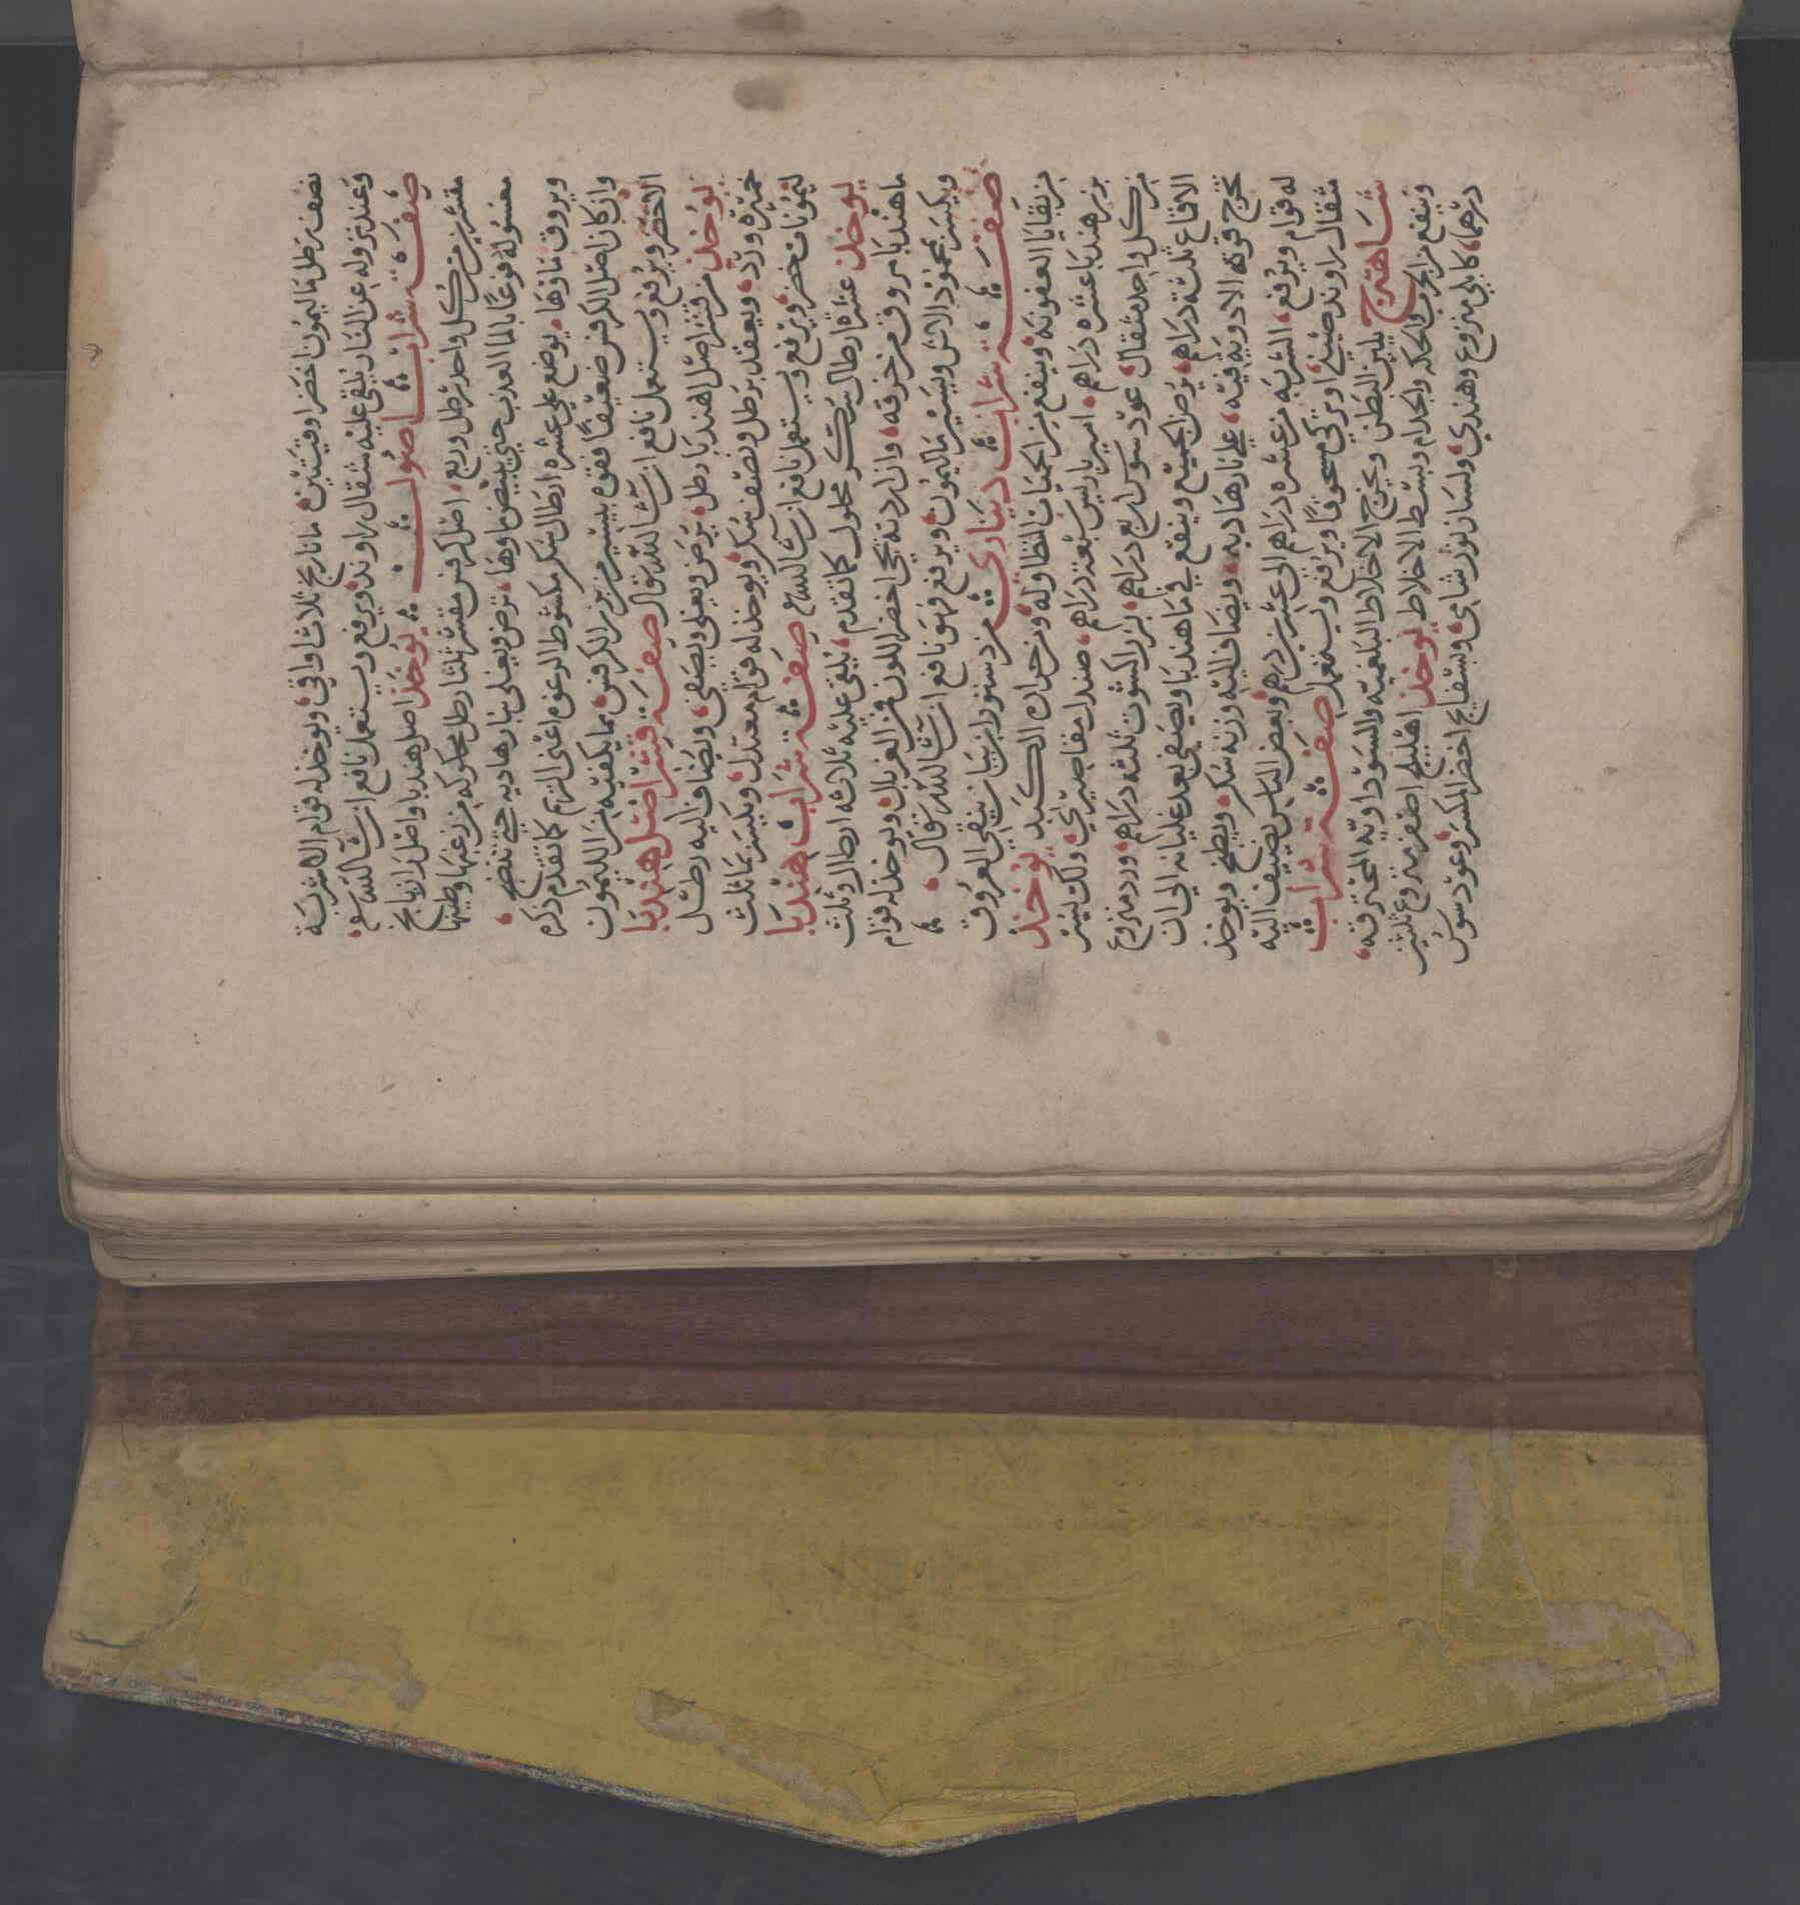 نصف رطل ماليمون اخضر اوقيتين مانارنج ثلاث اواقي ويوخذ له قوام الاشربة
وعند نزوله عن النار يلقى عليه مثقال راوند ويرفع ويستعمل نافع ان شا الله تع
صفة شراب اصول يوخذ اصل هندبا واصل رازيانج
مقشرين من كل واحد رطل وربع اصل كرفس مقشر ثلثا رطل محكوكه من زغبها وطينها
مغسوله فرعا بالما العذب حتى يبيض ماوها ترض ويغلى بنار هاديه حتى تنضج
ويروق ماوها يوضع على عشره ارطال سكر مكشوط الرغوه اعنى الريم كما تقدم ذكره
وان كان اصل الكرفس ضعيفا فقوه بيسير من بزر الكرفس بما يكفيه من الليمون
الاخضر ويرفع ويستعمل نافع ان شا الله تعالى صفة قشر اصل هندبا
يوخذ من قشر اصل الهندبا رطل يرض ويغلى ويصفى ويضاف اليه رطل
خميرة ورد ويعقد برطل ونصف سكر ويوخذ له قوام معتدل ويكسر بما ثلث
ليمونات خضر ويرفع ويستعمل نافع ان شا الله تع صفة شراب هندبا
يوخذ عشره ارطال سكر محلول كما تقدم يلقى عليه ثلاثه ارطال وثلث
ما هندبا مروق من خرقه وان اردته يجى اخضر اللون فمن الغربال ويوخذ له قوام
ويكسر بحموذ الاس ويسير ماليمون ويرفع فهو نافع ان شا الله تعالى
صفة شراب ديناري من دستور ابن بيان ينقى العروق
من بقايا العفونه وينفع من الحميات المتطاوله ومن حرارت الكبد يوخذ
بزر هندبا عشره دراهم امير باريس سبعة دراهم صندل مقاصيري ولك
من كل واحد مثقال عود سوس اربع دراهم بزر اكشوت ثلثه دراهم ورد منزوع
الاقماع ثلثة دراهم يرض الجميع وينقع في ما هندبا ويصفى بعد غليانه الى ان
تخرج قوة الادويه فيه على نار هاديه ويضاف اليه وزنه سكر ويطبخ ويوخذ
له قوام ويرفع الشربه من عشره دراهم الى عشرين درهم وبعض الناس يضيف اليه
مثقال راوند صيني او تركي مسحوقا ويرفع ويستعمل صفة شراب
شاهترج يلين البطن ويخرج الاخلاط البلغميه والسوداويه المحترقه
وينفع من الجرب والحكه والجدام وبسط الاخلاط يوخذ اهليلج اصفر منزوع ثلثين
درهما كابلي منزوع وهندي ولسان ثور شامي وبسفايج اخضر المكسر وعود سوس